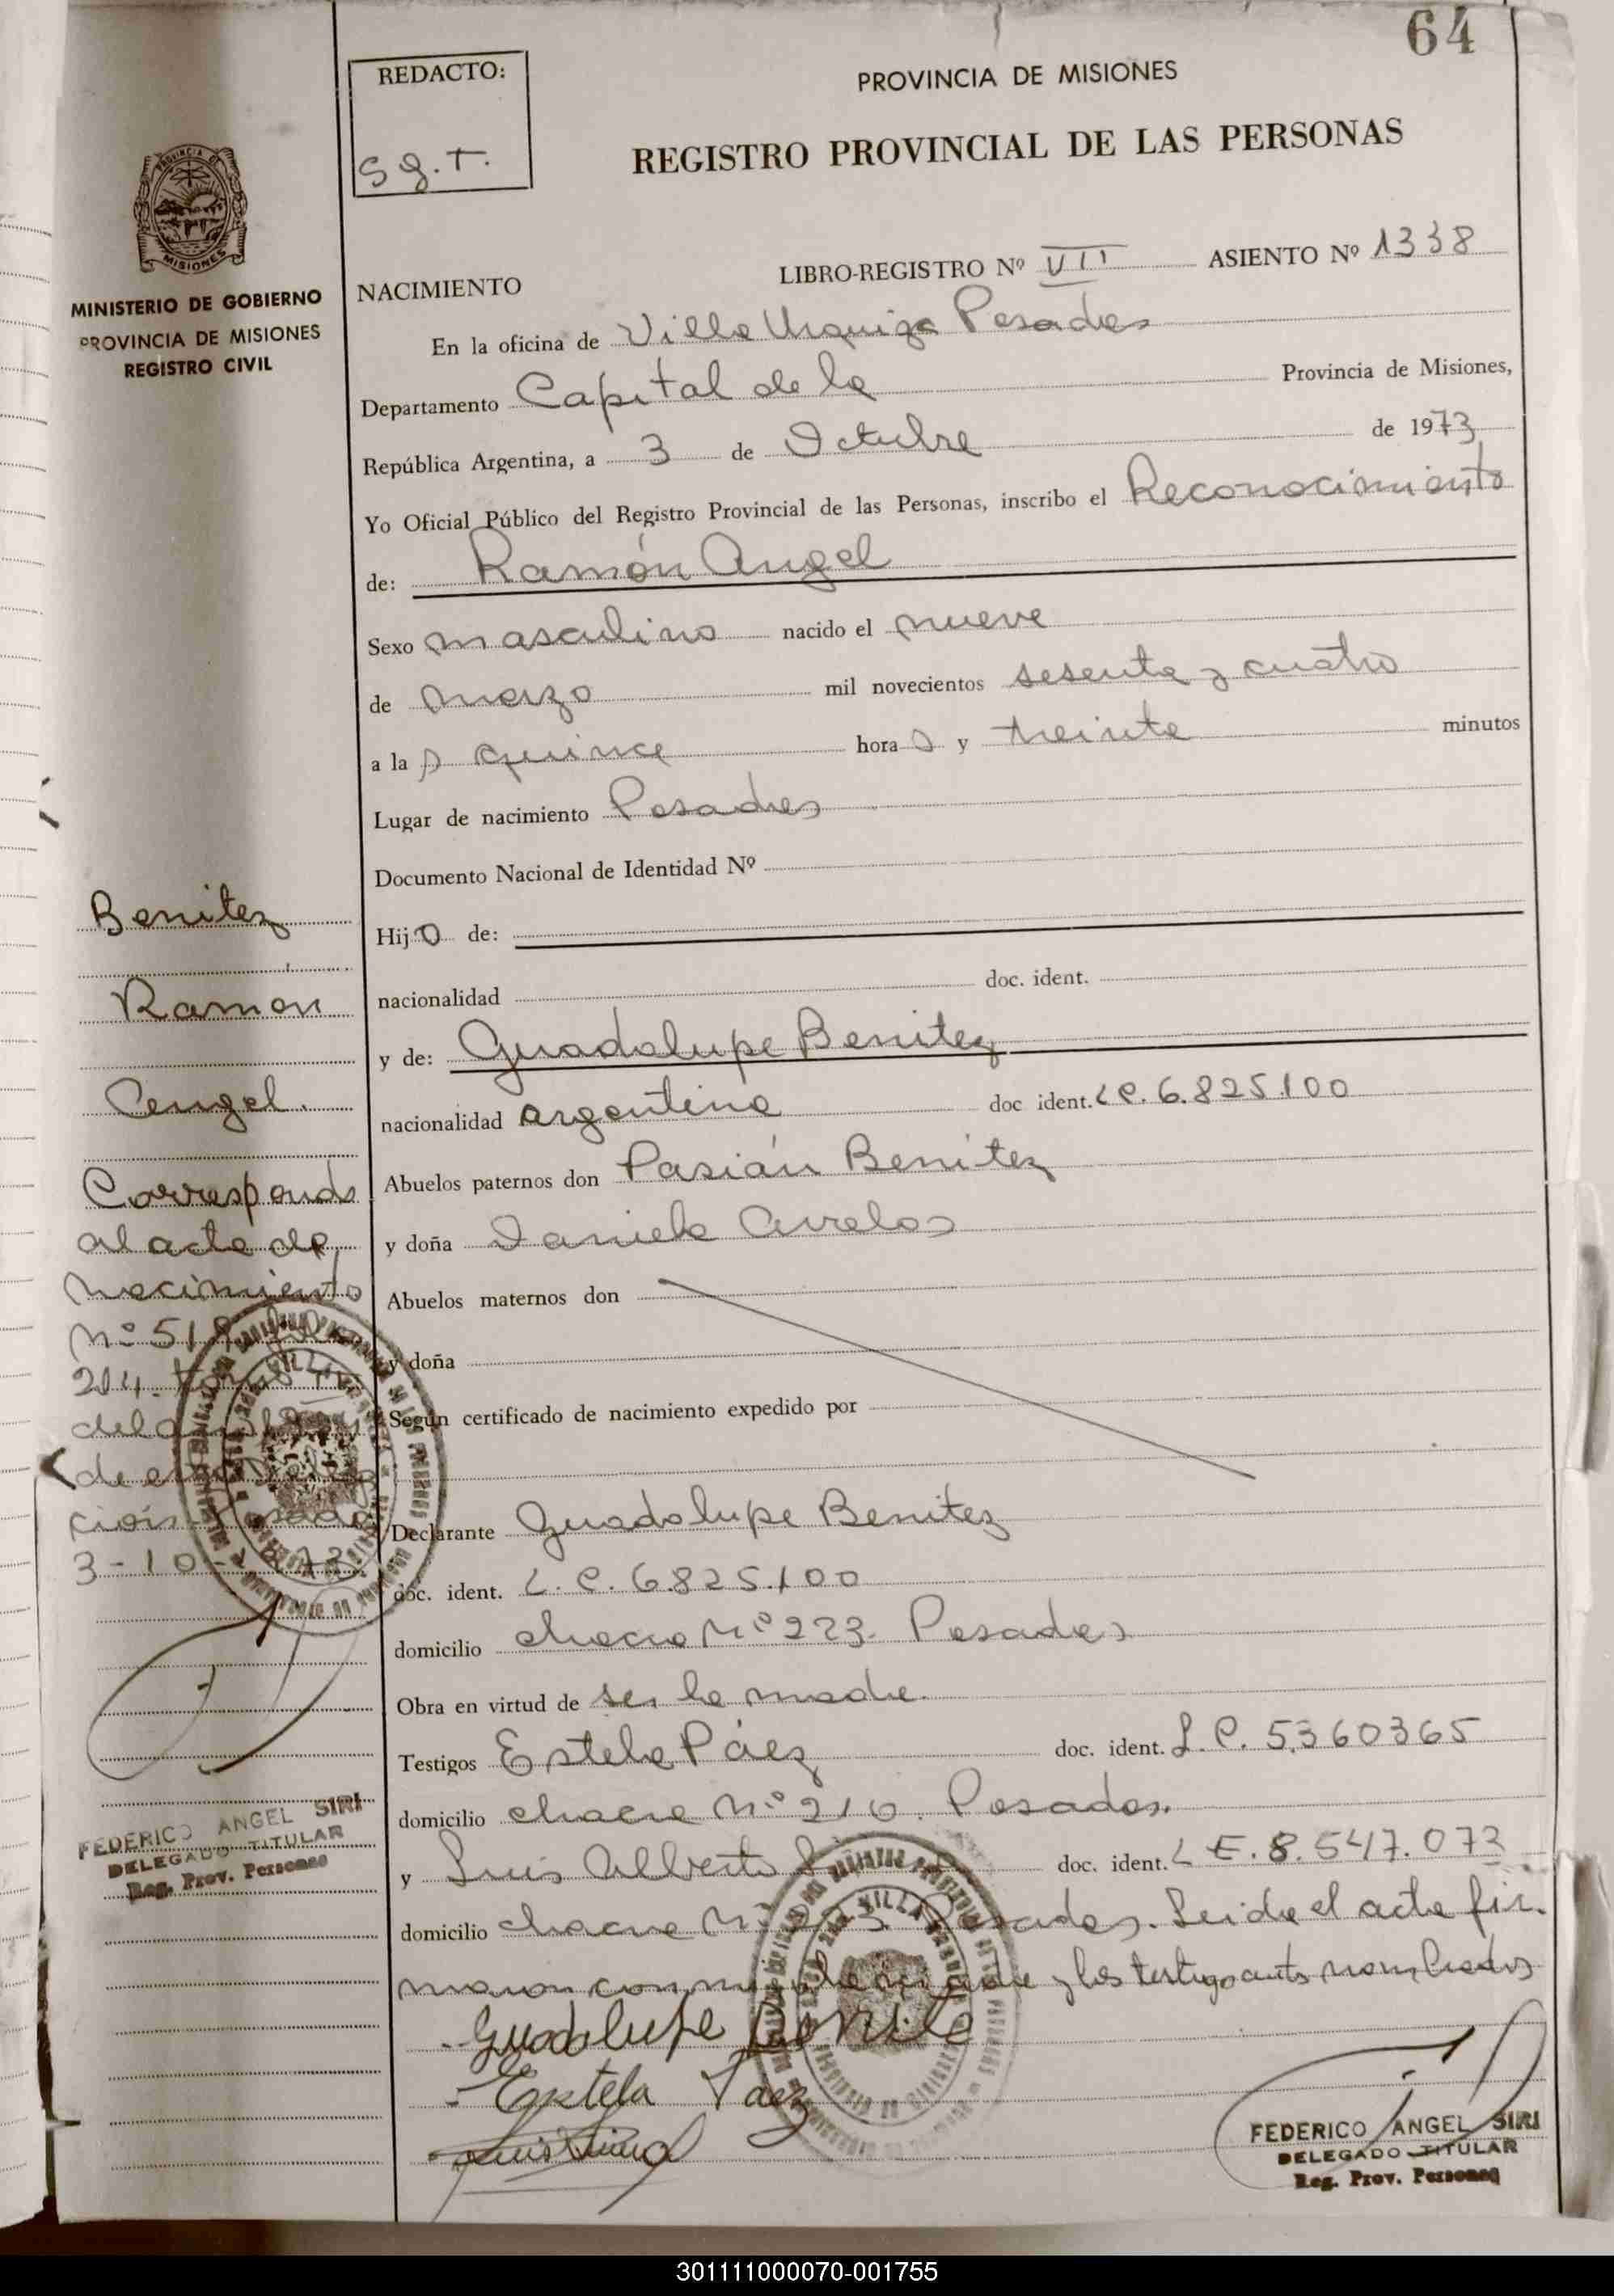 64
REDACTO:
S g. T.
PROVINCIA DE MISIONES
REGISTRO PROVINCIAL DE LAS PERSONAS
PROVINCIA DE
MISIONES
MINISTERIO DE GOBIERNO
PROVINCIA DE MISIONES
REGISTRO CIVIL
NACIMIENTO LIBRO-REGISTRO Nº VII ASIENTO Nº 1338
En la oficina de Villa Urquiza Posadas
Departamento Capital de la Provincia de Misiones,
República Argentina, a 3 de Octubre de 1973
Yo Oficial Público del Registro Provincial de las Personas, inscribo el Reconocimiento
de: Ramón Angel
Sexo masculino nacido el nueve
de marzo mil novecientos sesenta y cuatro
a la s quince hora s y treinta minutos
Lugar de nacimiento Posadas
Documento Nacional de Identidad Nº
Hijo de:
nacionalidad doc. ident.
y de: Guadalupe Benitez
nacionalidad argentina doc ident. L C. 6.825.100
Abuelos paternos don Pasián Benitez
y doña Daniela
Abuelos maternos don
y doña
Según certificado de nacimiento expedido por
Declarante Guadalupe Benitez
doc. ident. L. C. 6.825.100
domicilio chacra Nº 223. Posadas
Obra en virtud de ser la madre.
Testigos Estela Páez doc. ident. L. C. 5.360365
domicilio chacra Nº 216. Posadas.
y Luis Alberto doc. ident. L E. 8.547.073
domicilio chacra Nº Posadas. Leida el acta fir-
maron conmigo la madre y los testigo antes nombrados
Guadalupe Benite
Estela Paez
FEDERICO ANGEL SIRI
DELEGADO TITULAR
Reg. Prov. Personas
Benitez
Ramon
Angel.
Corresponde
al acta de
nacimiento
Nº 51
214.
del
de
3-10-
FEDERICO ANGEL SIRI
DELEGADO TITULAR
Reg. Prov. Personas
301111000070-001755